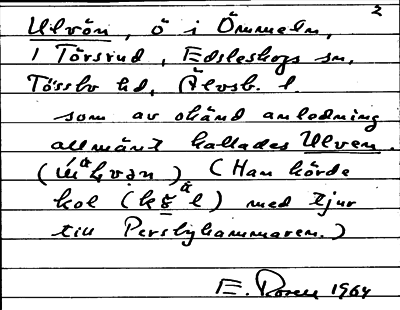 2
Ulvön, ö i Ömmeln,
i Törsrud, Edsleskogs sn,
Tössbo hd, Älvsb. l.
som av okänd anledning
allmänt kallades Ulven.
(Han körde
kol med tjur
till Persbyhammaren.)
E. 1964